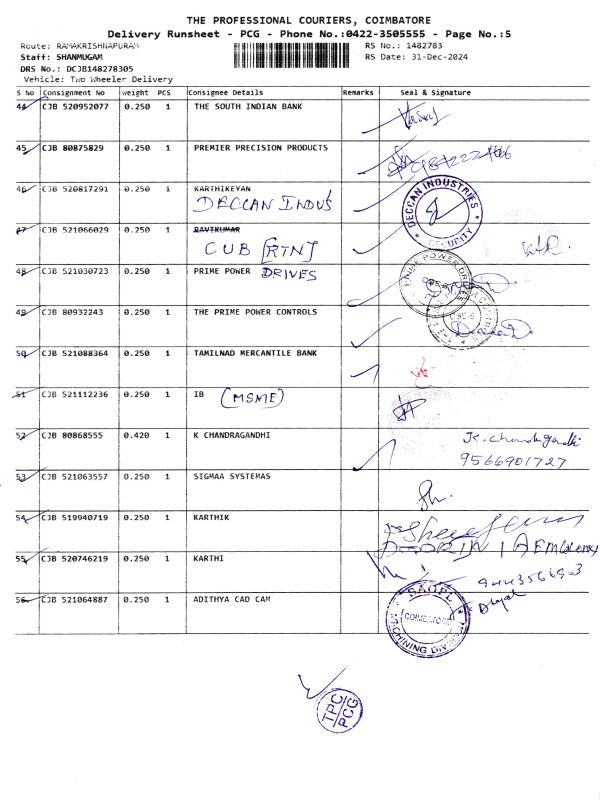 THE PROFESSIONAL COURIERS, COIMBATORE
Delivery Runsheet - PCG - Phone No.:0422-3505555 - Page No.:5
Route: RAMAKRISHNAPURAM
RS No.: 1482783
Staff: SHANMUGAM
RS Date: 31-Dec-2024
DRS No.: DCJB148278305
Vehicle: Two Wheeler Delivery
S No Consignment No Weight PCS Consignee Details Remarks Seal & Signature
44 CJB 520952077 0.250 1 THE SOUTH INDIAN BANK
45 CJB 80875829 0.250 1 PREMIER PRECISION PRODUCTS
46 CJB 520817291 0.250 1 KARTHIKEYAN
DECCAN INDUS
DECCAN INDUSTRIES
SECURITY
47 CJB 521066029 0.250 1 RAVIKUMAR
CUB [RTN]
48 CJB 521030723 0.250 1 PRIME POWER DRIVES
PRIME POWER DRIVES
CBE-6
49 CJB 80932243 0.250 1 THE PRIME POWER CONTROLS
CBE-6
50 CJB 521088364 0.250 1 TAMILNAD MERCANTILE BANK
51 CJB 521112236 0.250 1 IB (MSME)
52 CJB 80868555 0.420 1 K CHANDRAGANDHI
K. Chandragandhi
9566901727
53 CJB 521063557 0.250 1 SIGMAA SYSTEMAS
54 CJB 519940719 0.250 1 KARTHIK
55 CJB 520746219 0.250 1 KARTHI
56 CJB 521064887 0.250 1 ADITHYA CAD CAM
SAGPL
COIMBATORE
MACHINING DIVISION
TPC
PCG